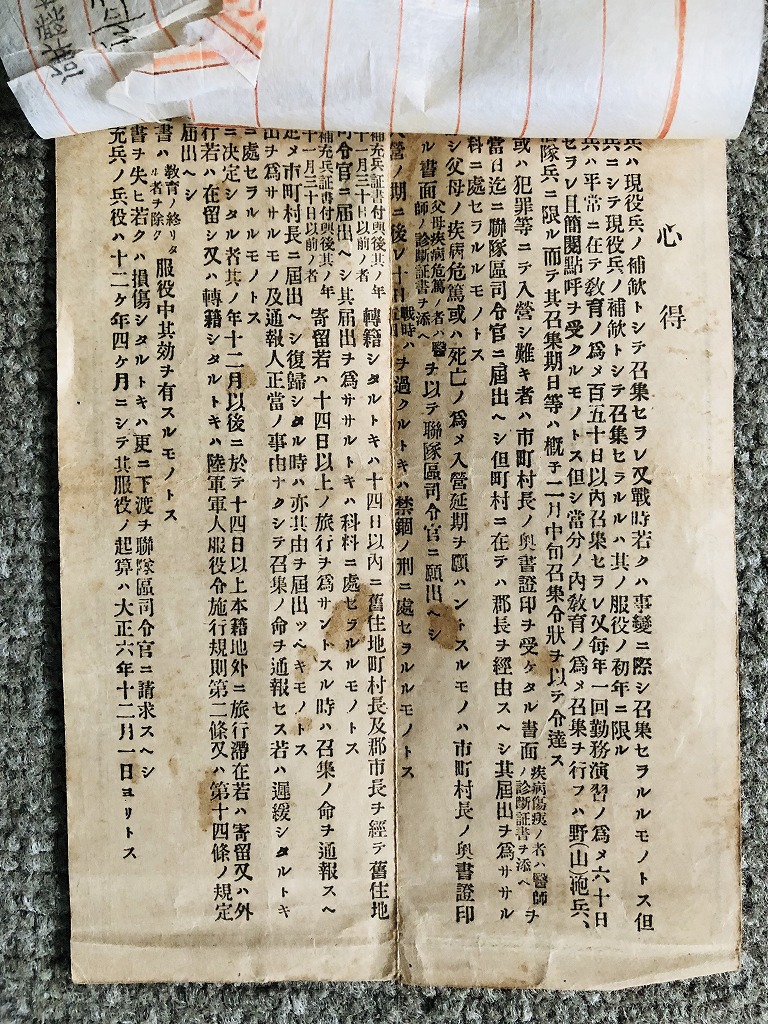 心得
兵ハ現役兵ノ補缺トシテ召集セラレ又戰時若クハ事變ニ際シ召集セラルルモノトス但
兵ニシテ現役兵ノ補缺トシテ召集セラルルハ其ノ服役ノ初年ニ限ル
兵ハ平常ニ在テ敎育ノ爲メ百五十日以內召集セラレ又每年一回勤務演習ノ爲メ六十日
セラレ且簡閱點呼ヲ受クルモノトス但シ當分ノ內敎育ノ爲メ召集ヲ行フハ野(山)砲兵、
隊兵ニ限ル而テ其召集期日等ハ概子二月中旬召集令狀ヲ以テ令達ス
或ハ犯罪等ニテ入營シ難キ者ハ市町村長ノ奧書證印ヲ受ケタル書面疾病傷痍ノ者ハ醫師ノ診斷証書ヲ添ヘヲ
當日迄ニ聯隊區司令官ニ屆出ヘシ但町村ニ在テハ郡長ヲ經由スヘシ其屆出ヲ爲ササル
科ニ處セラルルモノトス
シ父母ノ疾病危篤或ハ死亡ノ爲メ入營延期ヲ願ハントスルモノハ市町村長ノ奧書證印
ル書面父母疾病危篤ノ者ハ醫師ノ診斷証書ヲ添ヘヲ以テ聯隊區司令官ニ願出ヘシ
營ノ期ニ後レ十日戰時ハヲ過クルトキハ禁錮ノ刑ニ處セラルルモノトス
補充兵証書付與後其ノ年十一月三十日以前ノ者轉籍シタルトキハ十四日以內ニ舊住地町村長及郡市長ヲ經テ舊住地
司令官ニ屆出ヘシ其屆出ヲ爲ササルトキハ科料ニ處セラルルモノトス
補充兵証書付與後其ノ年十一月三十日以前ノ者寄留若ハ十四日以上ノ旅行ヲ爲サントスル時ハ召集ノ命ヲ通報スヘ
定メ市町村長ニ屆出ヘシ復歸シタル時ハ亦其由ヲ屆出ツヘキモノトス
出ヲ爲ササルモノ及通報人正當ノ事由ナクシテ召集ノ命ヲ通報セス若ハ遲緩シタルトキ
ニ處セラルルモノトス
ニ決定シタル者其ノ年十二月以後ニ於テ十四日以上本籍地外ニ旅行滯在若ハ寄留又ハ外
行若ハ在留シ又ハ轉籍シタルトキハ陸軍軍人服役令施行規則第二條又ハ第十四條ノ規定
屆出ヘシ
書ハ敎育ノ終リタル者ヲ除ク服役中其効ヲ有スルモノトス
書ヲ失ヒ若クハ損傷シタルトキハ更ニ下渡ヲ聯隊區司令官ニ請求スヘシ
充兵ノ兵役ハ十二ケ年四ケ月ニシテ其服役ノ起算ハ大正六年十二月一日ヨリトス